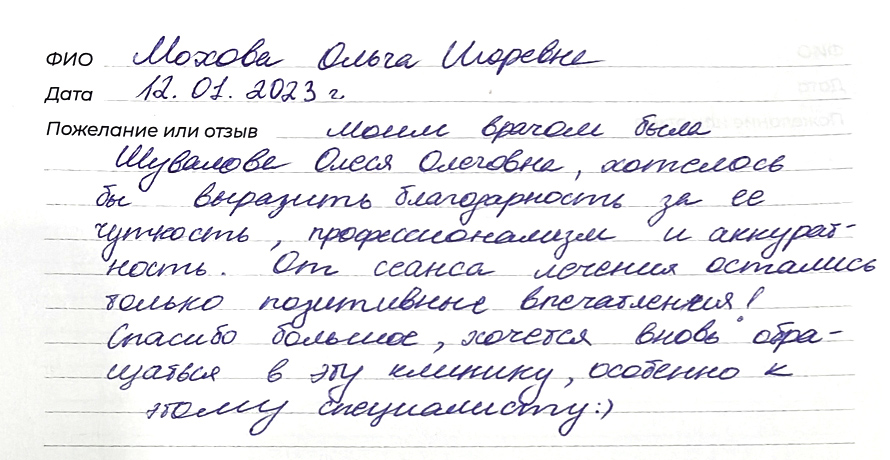 ФИО Мохова Ольга Игоревна
Дата 12.01.2023 г.
Пожелание или отзыв моим врачом была
Шувалова Олеся Олеговна, хотелось
бы выразить благодарность за ее
чуткость, профессионализм и аккурат-
ность. От сеанса лечения остались
только позитивные впечатления!
Спасибо большое, хочется вновь обра-
щаться в эту клинику, особенно к
этому специалисту:)